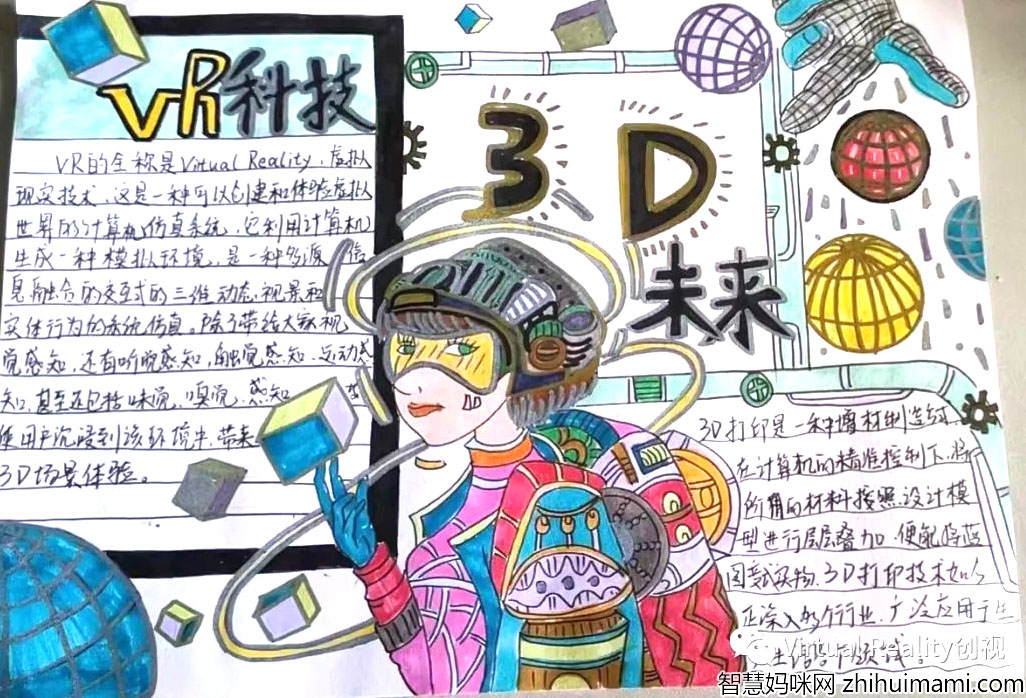 VR科技
VR的全称是Virtual Reality，虚拟
现实技术，这是一种可以创建和体验虚拟
世界的计算机仿真系统，它利用计算机
生成一种模拟环境，是一种多源信
息融合的交互式的三维动态视景和
实体行为的系统仿真。除了带给大家视
觉感知，还有听觉感知，触觉感知、运动感
知，甚至还包括味觉、嗅觉、感知
使用户沉浸到该环境中，带来
3D场景体验。
3D
未来
3D打印是一种增材制造技
在计算机的精准控制下，将
所用的材料按照设计模
型进行层层叠加，便能将蓝
图变成实物，3D打印技术如今
正深入多个行业，广泛应用于生
Virtual Reality创视
智慧妈咪网 zhihuimami.com